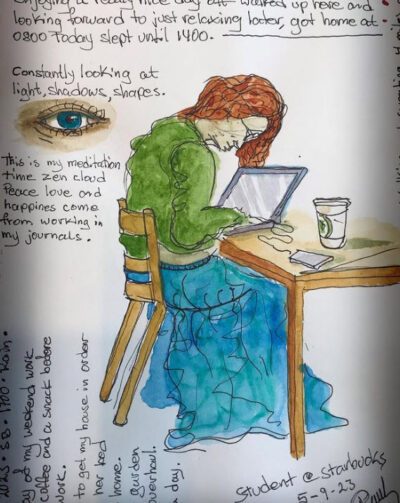 Enjoying a really nice day off walked up here and
looking forward to just relaxing later, got home at
0800 Today slept until 1400.
Constantly looking at
light, shadows, shapes.
This is my meditation
time zen cloud
Peace love and
happines come
from working in
my journals.
2023 · SB · 1700 · Rain ·
ay of my weekend work
coffee and a snack before
work.
to get my house in order
her bed
home.
garden
overhaul.
day.
student @ starbucks
5-9-23